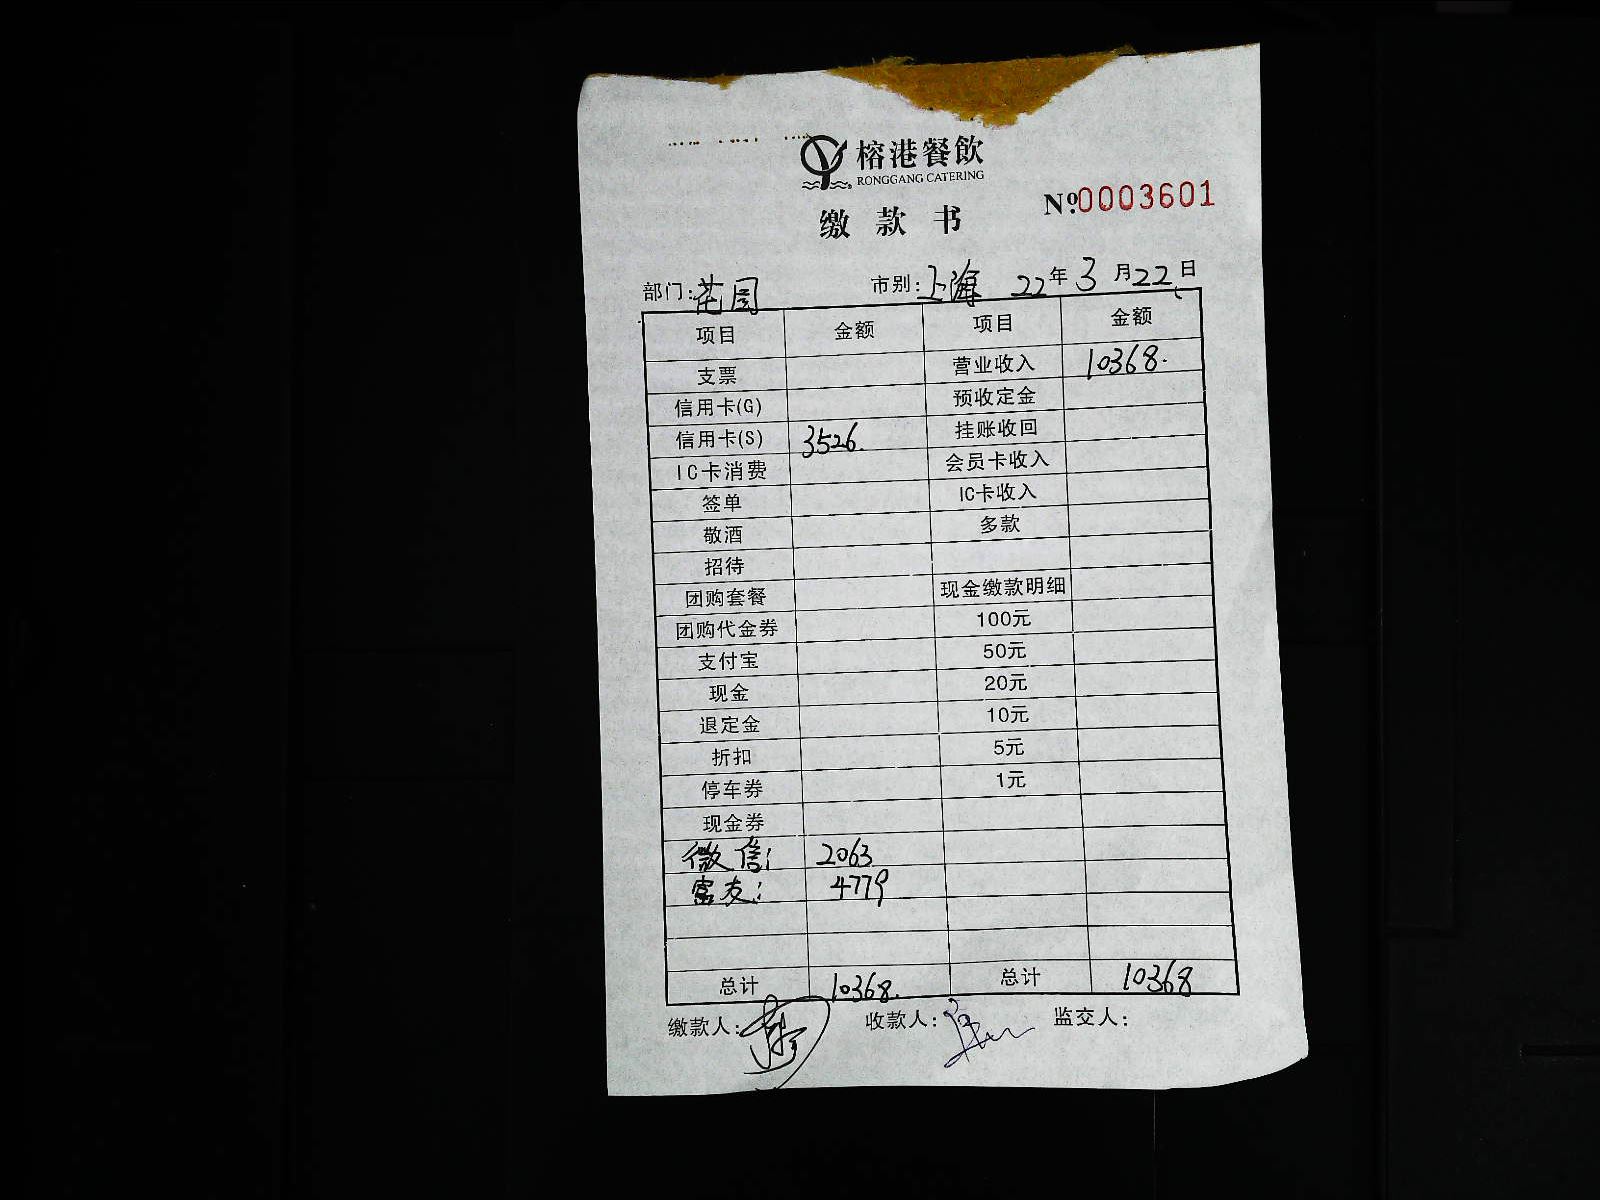 榕港餐飲
RONGGANG CATERING
No.0003601
缴款书
部门:花园 市别:上海 22年3月22日
项目 金额 项目 金额
支票 营业收入 10368.
信用卡(G) 预收定金
信用卡(S) 3526. 挂账收回
IC卡消费 会员卡收入
签单 IC卡收入
敬酒 多款
招待
团购套餐 现金缴款明细
团购代金券 100元
支付宝 50元
现金 20元
退定金 10元
折扣 5元
停车券 1元
现金券
微信: 2063
富友: 4779
总计 10368. 总计 10368
缴款人: 收款人: 监交人: